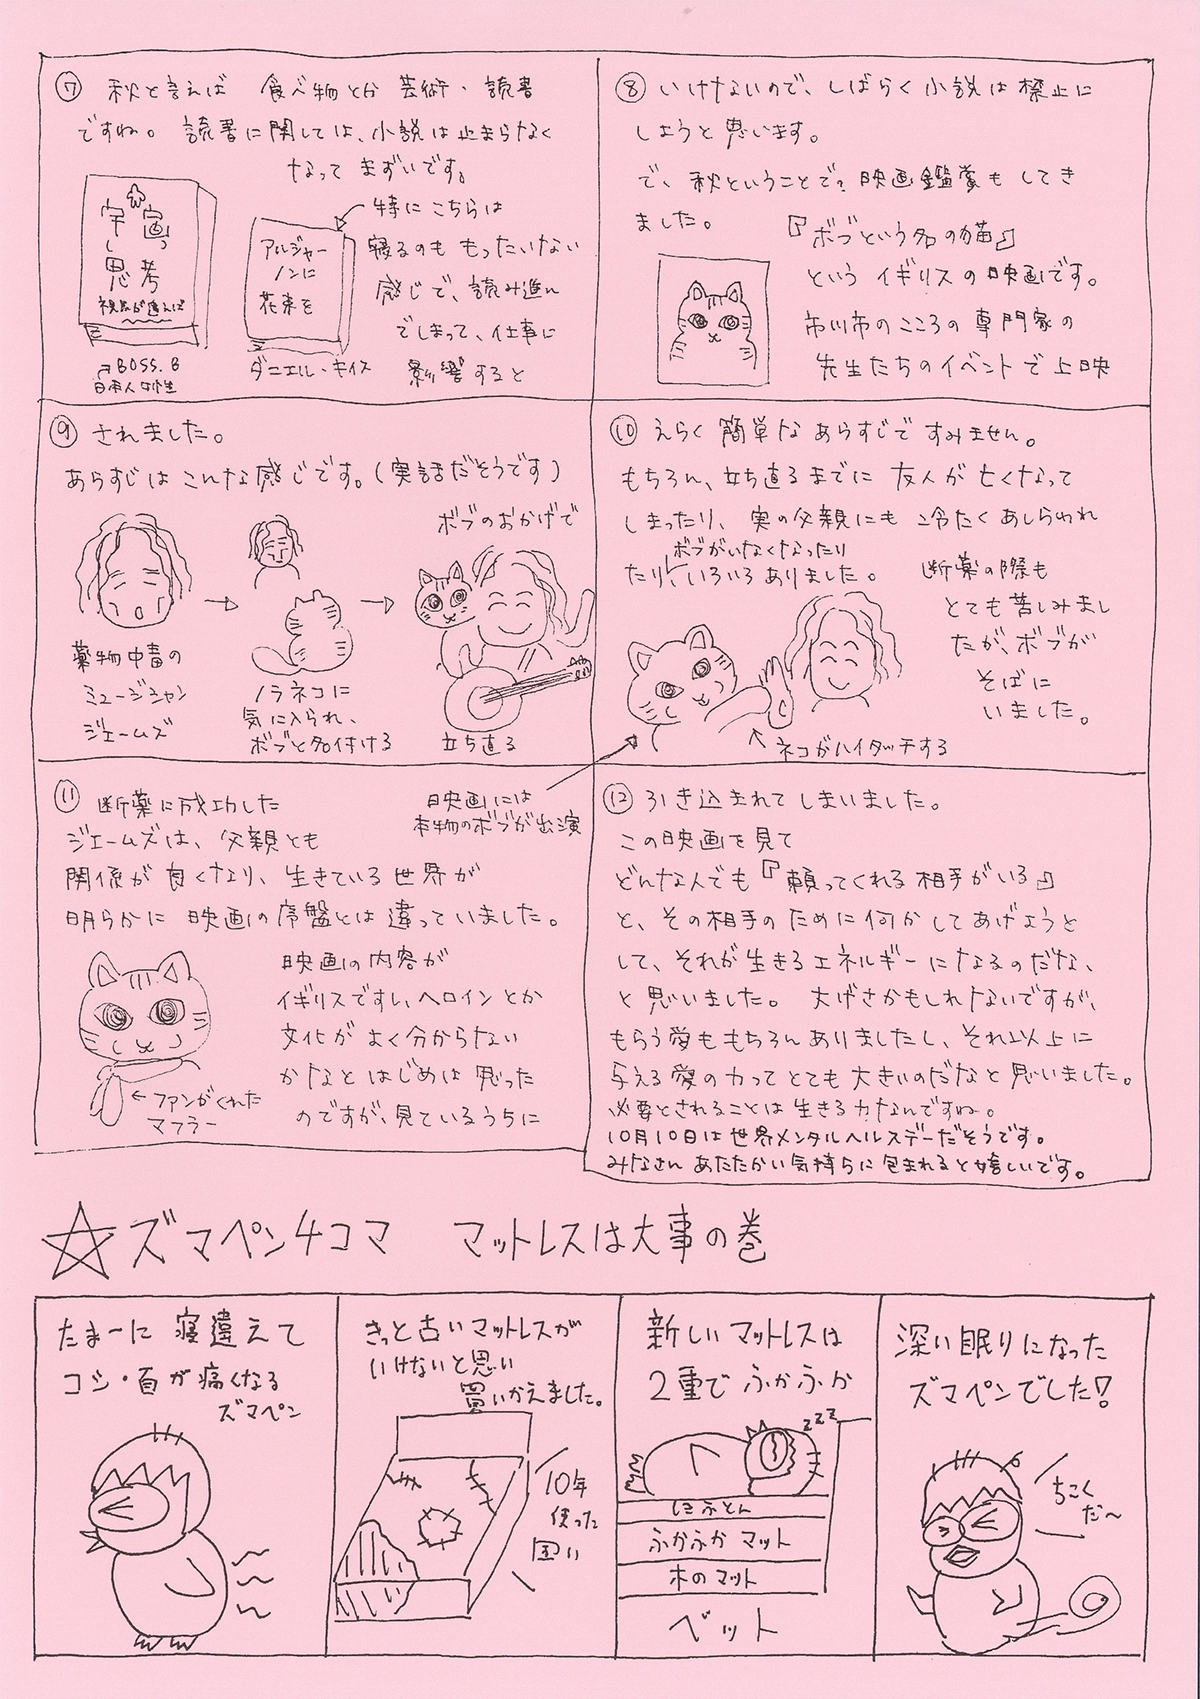 ⑦ 秋と言えば 食べ物とか 芸術・読書
ですね。 読書に関しては、小説は止まらなく
なって まずいです。
宇宙
思考
視点が違えば
BOSS.B
日本人女性
アルジャー
ノンに
花束を
ダニエル・キイス
特に こちらは
寝るのも もったいない
感じで、読み進ん
でしまって、仕事に
影響すると
⑧ いけないので、しばらく小説は禁止に
しようと思います。
で、秋ということで、映画鑑賞も してき
ました。
『ボブという名の猫』
という イギリスの映画です。
市川市のこころの専門家の
先生たちのイベントで上映
⑨ されました。
あらすじは こんな感じです。(実話だそうです)
薬物中毒の
ミュージシャン
ジェームズ
ノラネコに
気に入られ、
ボブと名付ける
ボブのおかげで
立ち直る
⑩ えらく 簡単な あらすじで すみません。
もちろん、立ち直るまでに 友人が 亡くなって
しまったり、 実の父親にも 冷たく あしらわれ
ボブがいなくなったり
たり、いろいろ ありました。
断薬の際も
とても苦しみまし
たが、ボブが
そばに
いました。
ネコがハイタッチする
映画には
本物のボブが出演
⑪ 断薬に成功した
ジェームズは、父親とも
関係が良くなり、生きている世界が
明らかに 映画の序盤とは 違っていました。
映画の内容が
イギリスですし、ヘロインとか
文化が よく分からない
かなと はじめは 思った
のですが、見ているうちに
ファンがくれた
マフラー
⑫ 引き込まれて しまいました。
この映画を見て
どんな人でも『頼ってくれる相手がいる』
と、その相手のために何かしてあげようと
して、それが生きるエネルギーになるのだな、
と思いました。 大げさかもしれないですが、
もらう愛ももちろんありましたし、それ以上に
与える愛の力ってとても大きいのだなと思いました。
必要とされることは生きる力なんですね。
10月10日は世界メンタルヘルスデーだそうです。
みなさん あたたかい気持ちに包まれると嬉しいです。
☆ズマペン4コマ マットレスは大事の巻
たまーに 寝違えて
コシ・首が痛くなる
ズマペン
きっと古いマットレスが
いけないと思い
買いかえました。
10年
使った
固い
新しいマットレスは
2重で ふかふか
zzz
ほふとん
ふかふか マット
木のマット
ベット
深い眠りになった
ズマペンでした!
ちこく
だ〜